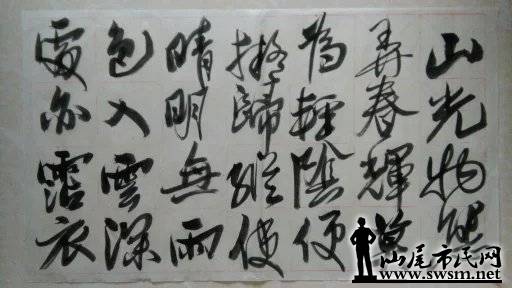 山光物態
弄春輝莫
為輕陰便
擬歸縱使
晴明無雨
色入雲深
處亦霑衣
汕尾市民网
www.swsm.net